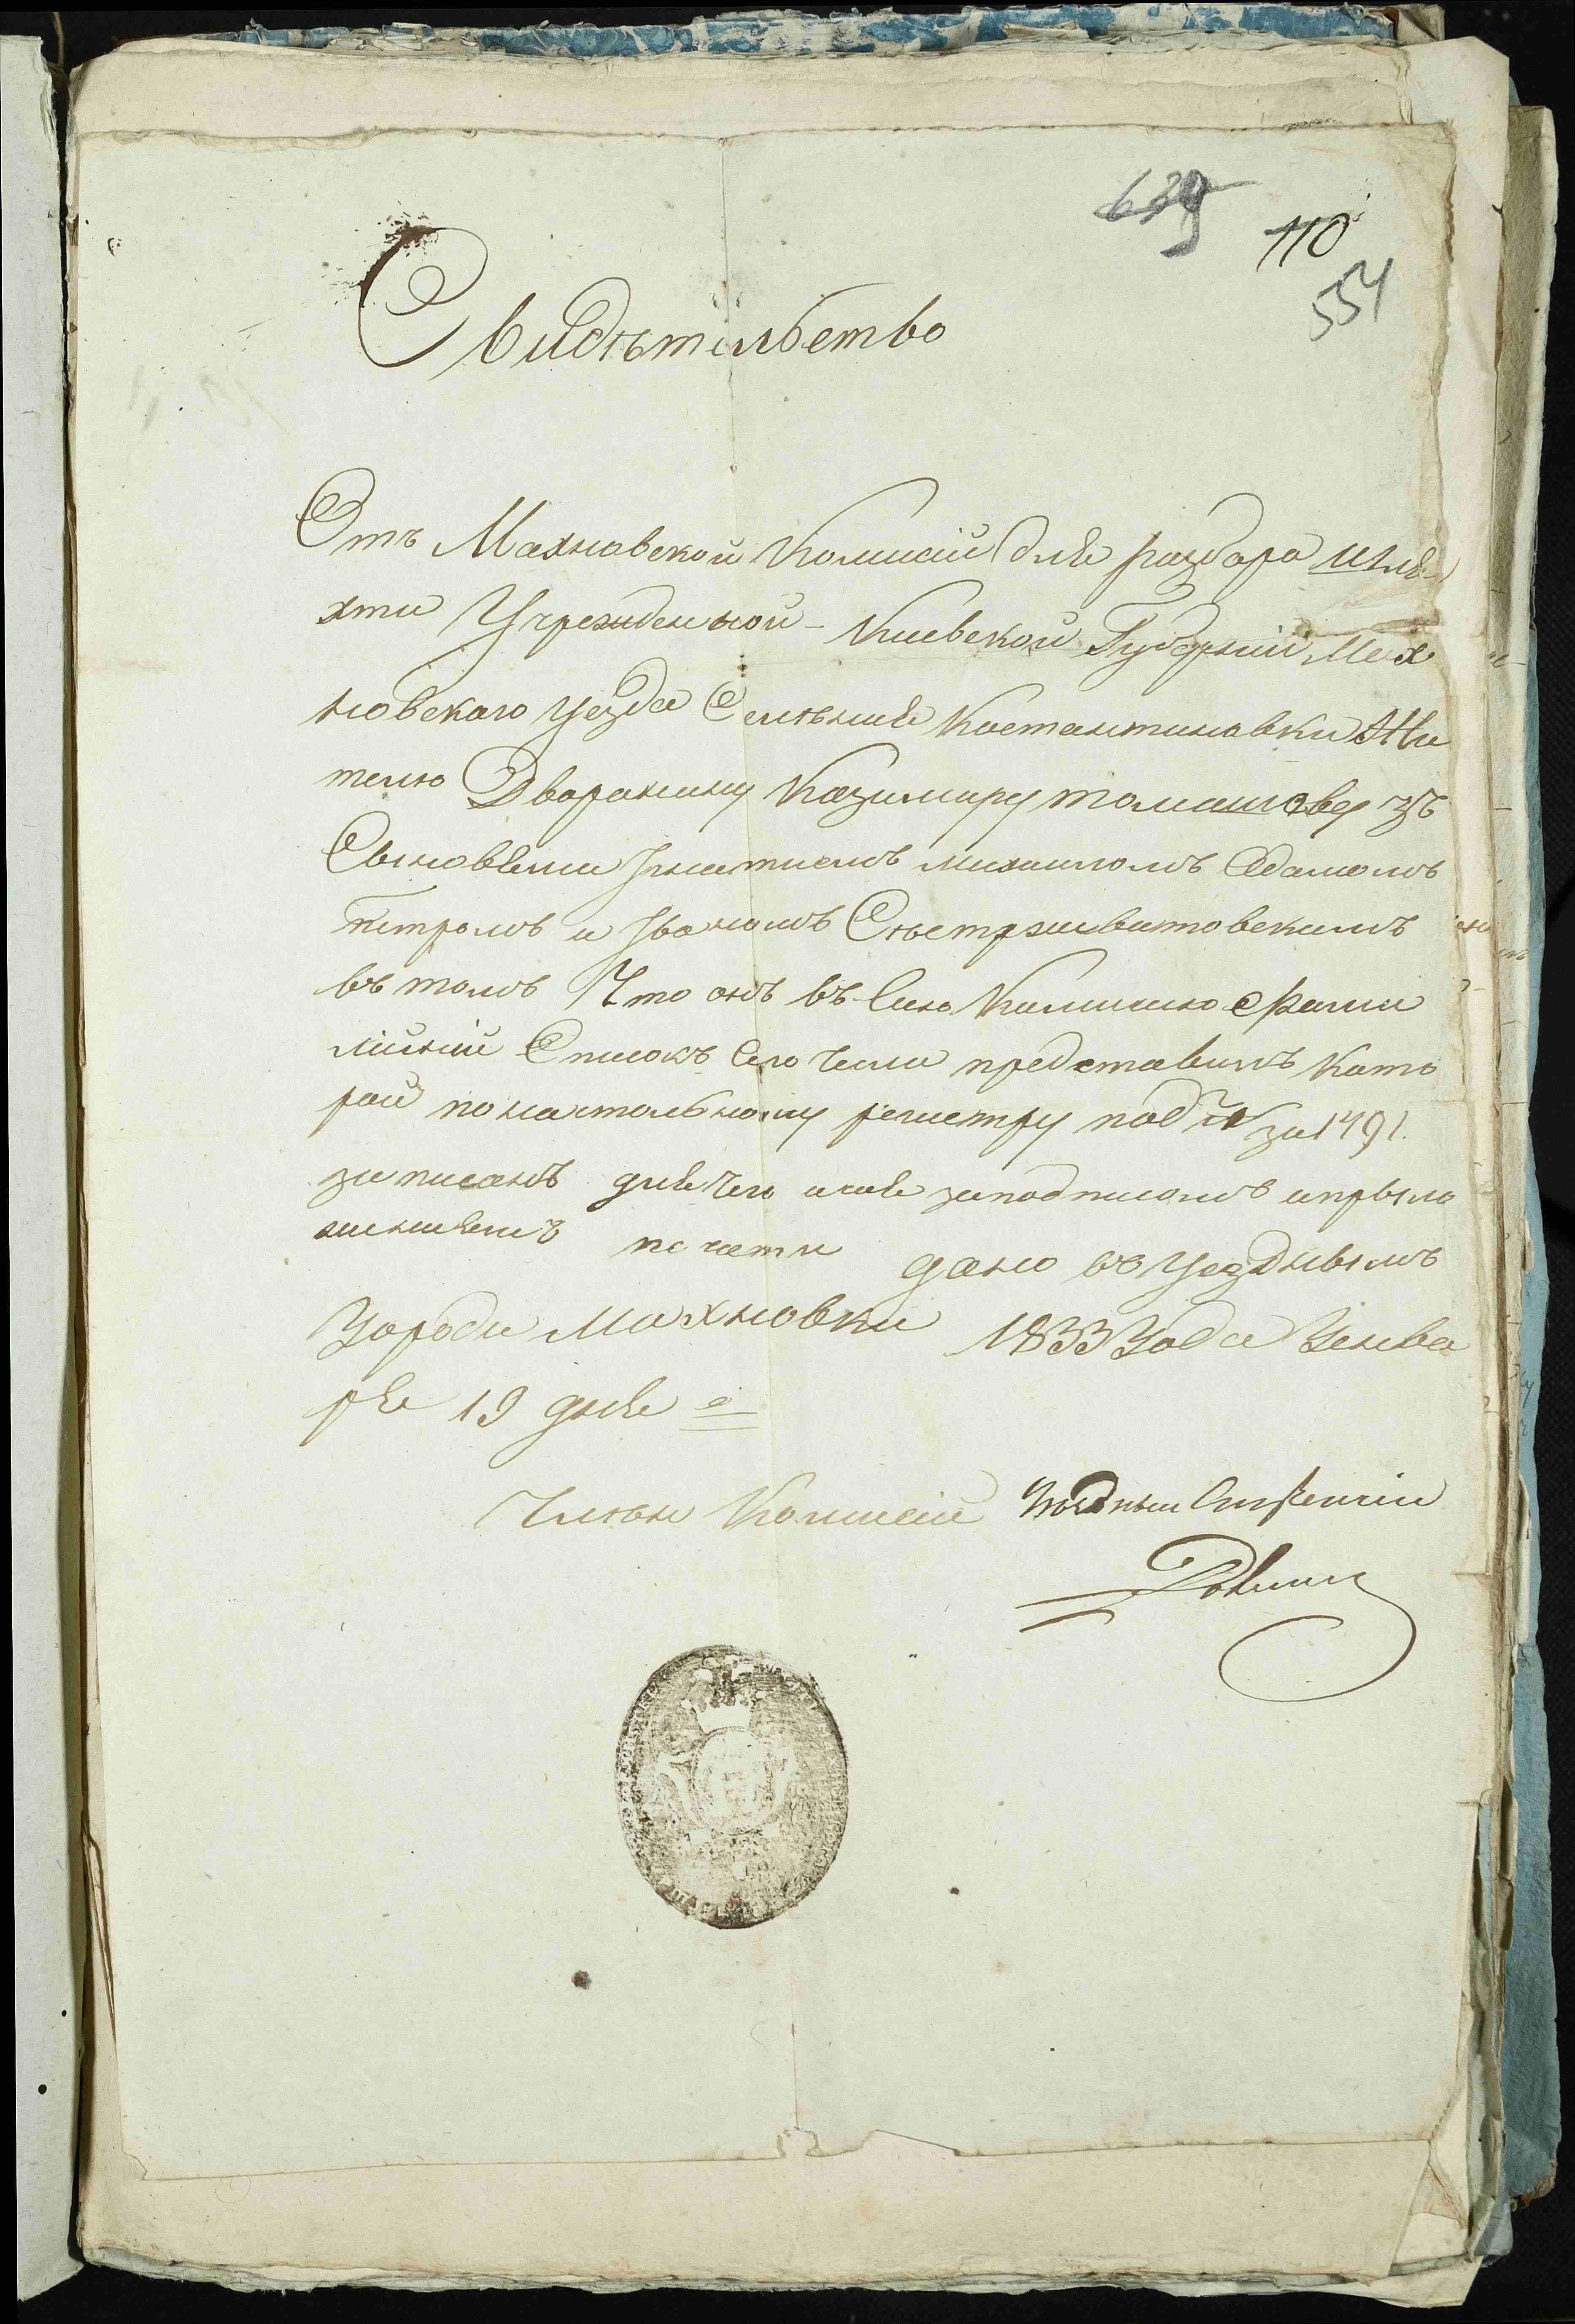 639
110
554
Свидѣтельство
Отъ Махновской Комисіи для разбора шля-
хти Учрежденной - Киевской Губерніи Мах
новского уезда Селѣнія Костантиновки Жи
телю Дворанину Казимиру Томашову зъ
Сыновьями Игнатиемъ михаиломъ Адамомъ
петромъ и Иваномъ
въ томъ Что онъ въ Сию Комисию Фами
лійній Списокъ Его Чили представилъ Като
рой по настольному регистру под № за 1491.
записанъ для Чего и сие заподписомъ и прыло
жениемъ печати дано въ Уездным
Городи Махновки 1833 Года Генва
ря 19 дня
Члѣн Комисіи Уѣздный